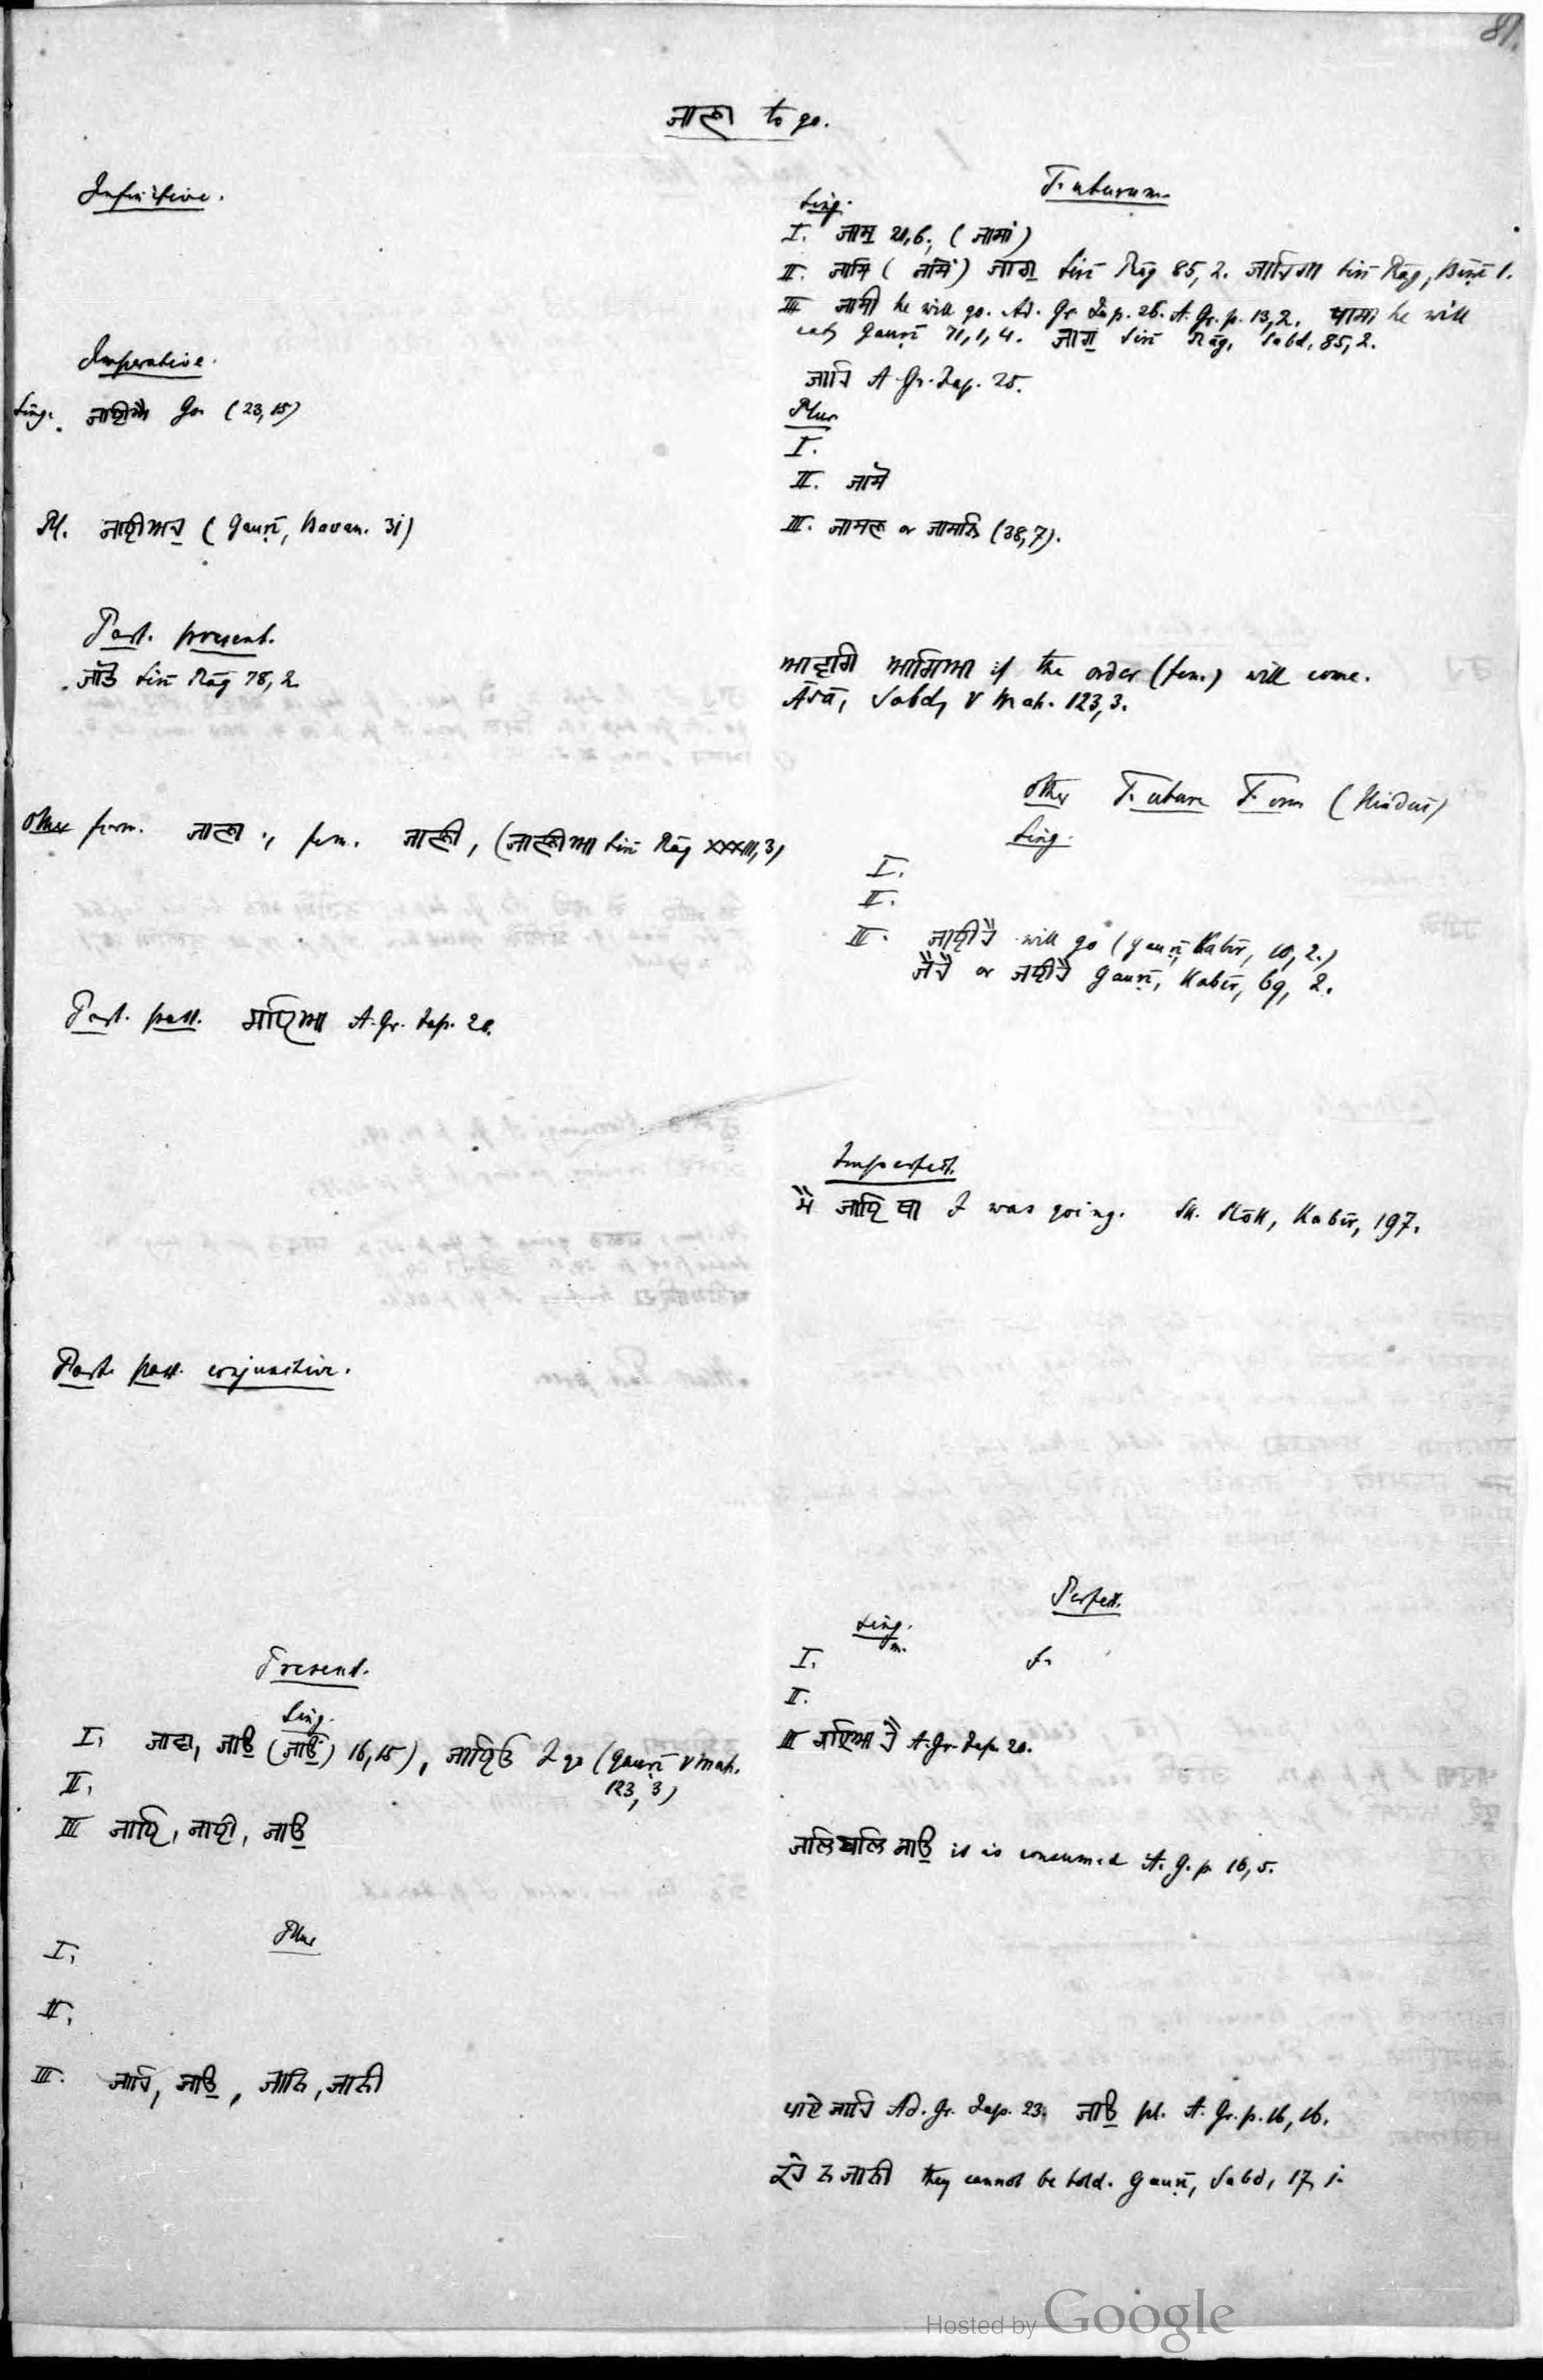 81.
ਜਾਣਾ to go.
Infinitive.
Imperative.
Sing. ਜਾਈਐ Go (23,15)
Pl. ਜਾਈਅਹੁ (Gauṛī, Bavan. 31)
Part. present.
ਜਾਂਤੋ Siri Rāg 78,2
other form. ਜਾਣਾ, fem. ਜਾਣੀ, (ਜਾਣੀਆ Siri Rāg XXXIII,3)
Part. past. ਗਇਆ A. Gr. Jap. 20.
Part. past. conjunctive.
Present.
Sing.
I. ਜਾਵਾ, ਜਾਉ (ਜਾਉਂ) 16,15), ਜਾਇਓ I go (Gauṛī V Mah.
123,3)
II.
III ਜਾਇ, ਜਾਈ, ਜਾਉ
Plur
I.
II.
III. ਜਾਹਿ, ਜਾਉ, ਜਾਨਿ, ਜਾਨੀ
Futurum.
Sing.
I. ਜਾਸੁ 20,6; (ਜਾਸਾਂ)
II. ਜਾਸਿ ( ) ਜਾਗੁ Siri Rāg 85,2. ਜਾਹਿਗਾ Siri Rāg, Bēṇī 1.
III ਜਾਸੀ he will go. Ad. Gr. Jap. 26. A. Gr. p. 13,2. he will
eat Gauṛī 71,1,4. ਜਾਗੁ Siri Rāg, Sabd, 85,2.
ਜਾਹਿ A. Gr. Jap. 25.
Plur
I.
II. ਜਾਸੋ
III. ਜਾਸਣ or ਜਾਸਨਿ (38,7).
ਆਵਗਿ ਆਗਿਆ if the order (fem.) will come.
Āsā, Sabd, V Mah. 123,3.
other Future Form (Hinduī)
Sing.
I.
II.
III. ਜਾਈਹੈ will go (Gauṛī Kabīr, 10, 2.)
ਜੈਹੈ or ਜਈਹੈ Gauṛī, Kabīr, 69, 2.
Imperfect.
ਮੈ ਜਾਇ ਥਾ I was going. Kabīr, 197.
Perfect.
Sing.
m. f.
I.
II.
III ਗਇਆ ਹੈ A. Gr. Jap. 20.
ਜਲਿ ਬਲਿ ਜਾਉ it is consumed A. G. p. 16,5.
ਪਾਏ ਜਾਹਿ Ad. Gr. Jap. 23. ਜਾਉ pl. A. Gr. p. 16, 16.
ਕਹੇ ਨ ਜਾਨੀ they cannot be told. Gauṛī, Sabd, 17, 1.
Hosted by Google